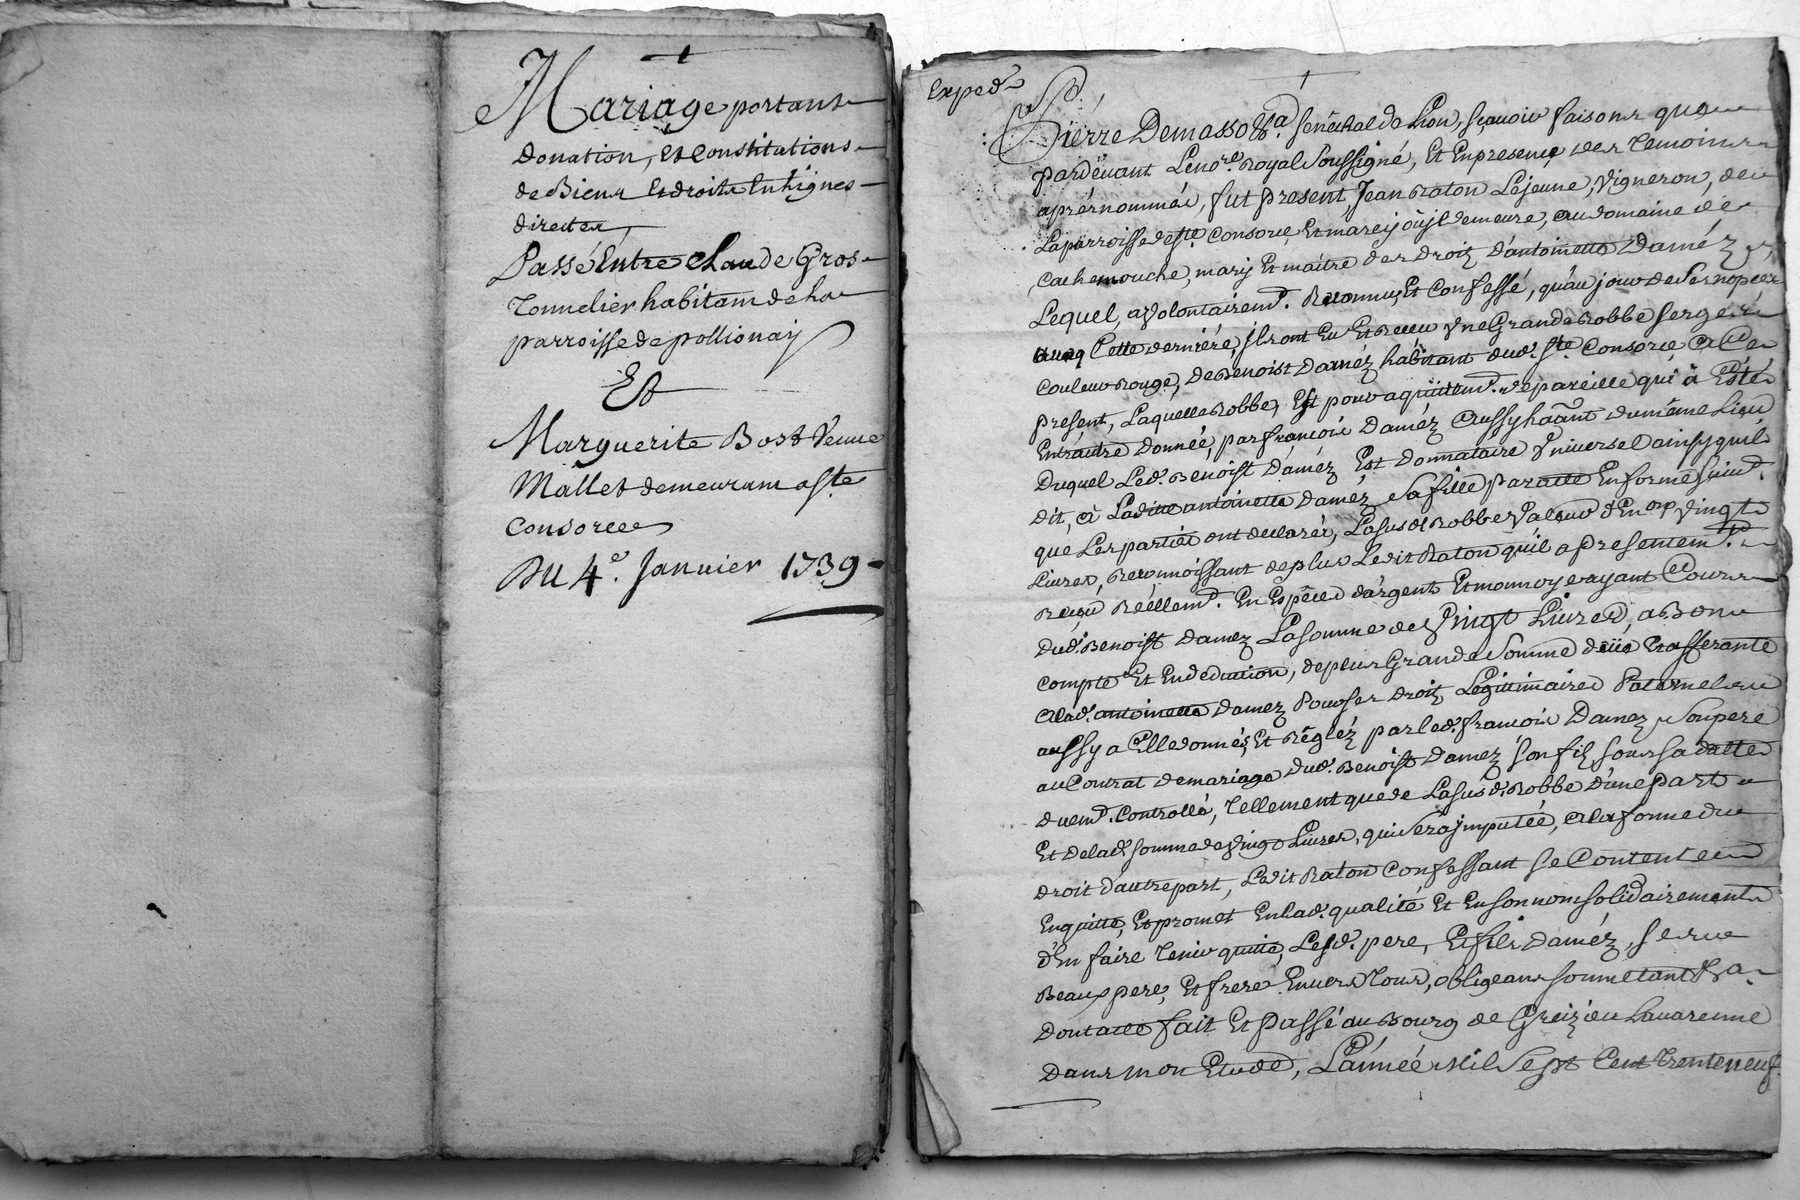 Mariage portant
donation, et Constitutions
de Biens et droits en lignes
directes,
Passé Entre Claude Gros
Tonnelier habitant de la
parroisse de pollionay
Et
Marguerite Bost veuve
Mallet demeurant a ste
Consorce
Du 4e. Janvier 1739
Exped.
Pierre Demasso &a. senéchal de Lion, sçavoir faisons que
pardevant Le nore. Royal Soussigné, Et En presence des temoins
aprés nommés, fut present, Jean Raton Lejeune, vigneron, de
La parroisse de ste. Consorce, Et marcy où jl demeure, au domaine de
Cachemouche, mary Et maitre des droits d'antoinette Daméz,
Lequel, a volontairemt. Reconnus Et Confessé, qu'au jour de Ses nopces
avec Cette derniére, jls ont Eu Et Receu vne Grande Robbe serge
Couleur Rouge, de Benoist Daméz habitant dud. ste. Consorce a Ce
present, Laquelle Robbe, Est pour aquittemt. de pareille qui à Esté
Entr'autre donnée, par françois Daméz aussy haant du même Lieu
Duquel Led. Benoist Daméz Est donnataire vniversel ainsy qu'il
dit, à Laditte antoinette Daméz sa fille par acte En forme suivt.
que Les parties ont declarés, La susd. Robbe valeur d'En on vingt
Livres, Reconnoissant de plus Ledit Raton qu'il a presentemt.
Reçu Réellemt. En Espéces d'argent Et monnoye ayant Cours
dud. Benoist Damez La somme de vingt Livres, a Bon
compte Et En deduction, de plus Grande Somme düe Et afferante
a lad. antoinette Damez Pour ses droits Legitimaires Paternels
aussy a Elle donnés, Et Réglez par led. françois Damez Son pere
au Contrat de mariage dud. Benoist Damez son fils sous sa datte
duemt. Controllé, Tellement que de La susd. Robbe d'une part
Et de lad. somme de vingt Livres, qui sera jmputée, a la forme du
droit d'autre part, Ledit Raton Confessant se Content
En quitte, Et promet En lad. qualité Et En son nom solidairement
d'En faire tenir quitte, Lesd. pere, Et fils Daméz, ses
Beaux pere, Et frere Envers Tous, obligeans soumettant &a.
Dont acte fait Et Passé au Bourg de Greizieu Lavarenne
Dans mon Etude, L'année Mil Sept Cent Trenteneuf